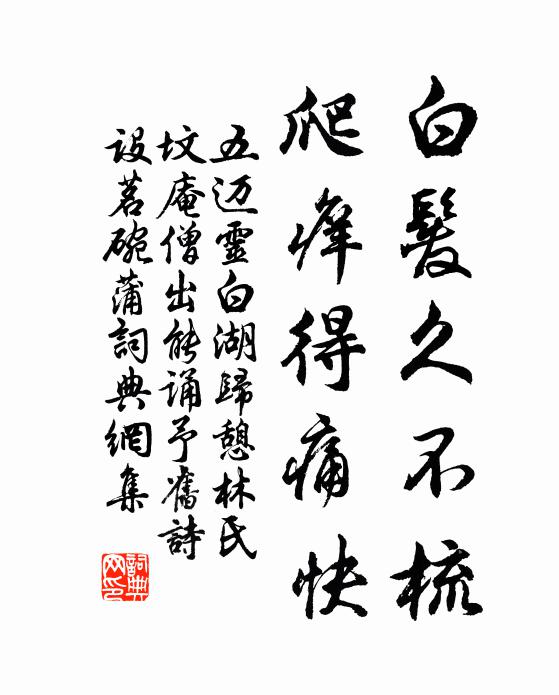 白髮久不梳
爬癢得痛快
五迈靈白湖歸憩林氏
坟庵僧出能誦予舊詩
設茗碗蒲詞典網集
詞典網印